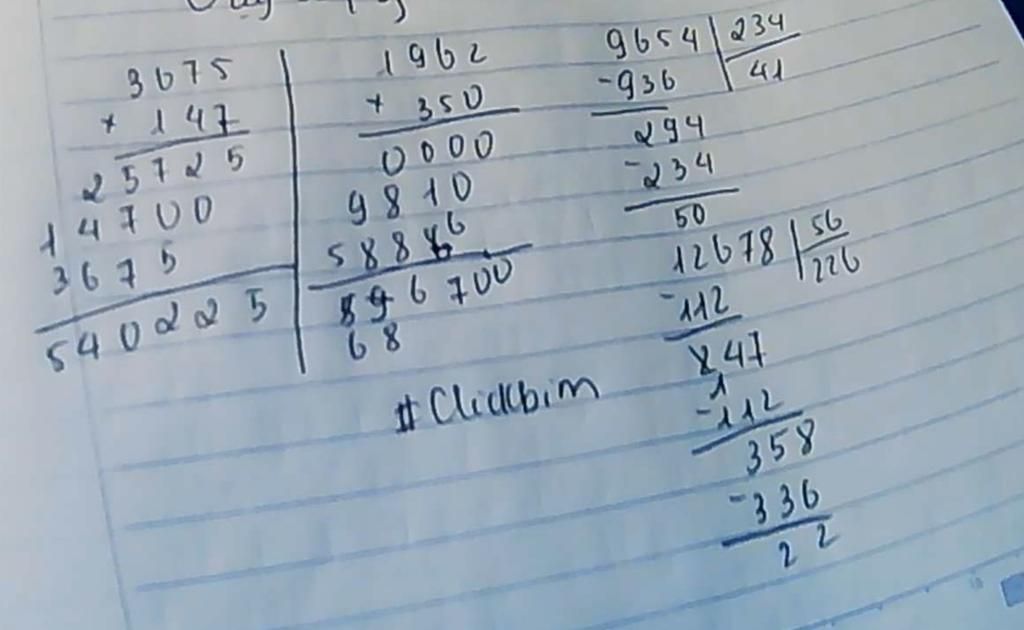 3675
× 147
25725
14700
3675
540225
1962
× 350
0000
9810
5886
596700
68
9654 | 234
-936 41
294
-234
50
12678 | 56
-112 226
147
-112
358
-336
22
#Clickbim